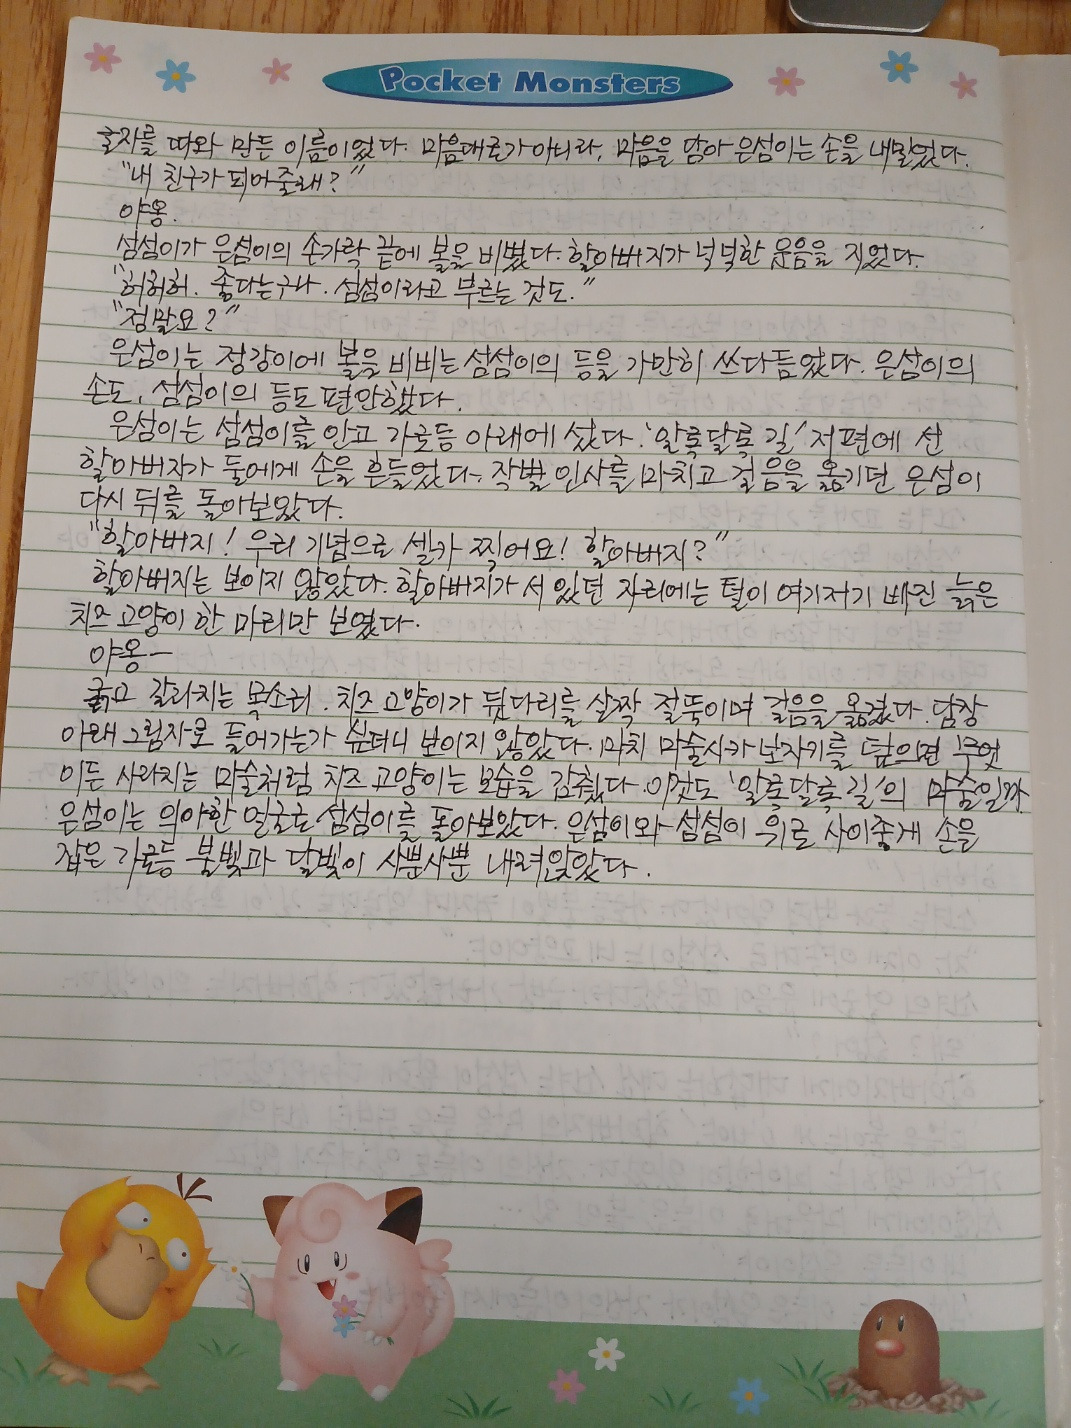 Pocket Monsters
글자를 따와 만든 이름이었다. 마음대로가 아니라, 마음을 담아 은섬이는 손을 내밀었다.
"내 친구가 되어줄래?"
야옹.
섬섬이가 은섬이의 손가락 끝에 볼을 비볐다. 할아버지가 넉넉한 웃음을 지었다.
"허허허. 좋다는구나. 섬섬이라고 부르는 것도."
"정말요?"
은섬이는 정강이에 볼을 비비는 섬섬이의 등을 가만히 쓰다듬었다. 은섬이의
손도, 섬섬이의 등도 편안했다.
은섬이는 섬섬이를 안고 가로등 아래에 섰다. '알록달록 길' 저편에 선
할아버지가 둘에게 손을 흔들었다. 작별 인사를 마치고 걸음을 옮기던 은섬이
다시 뒤를 돌아보았다.
"할아버지! 우리 기념으로 셀카 찍어요! 할아버지?"
할아버지는 보이지 않았다. 할아버지가 서 있던 자리에는 털이 여기저기 빠진 늙은
치즈 고양이 한 마리만 보였다.
야옹—
굵고 갈라지는 목소리. 치즈 고양이가 뒷다리를 살짝 절뚝이며 걸음을 옮겼다. 담장
아래 그림자로 들어가는가 싶더니 보이지 않았다. 마치 마술사가 보자기를 덮으면 무엇
이든 사라지는 마술처럼 치즈 고양이는 모습을 감췄다. 이것도 '알록달록 길'의 마술일까
은섬이는 의아한 얼굴로 섬섬이를 돌아보았다. 은섬이와 섬섬이 위로 사이좋게 손을
잡은 가로등 불빛과 달빛이 사뿐사뿐 내려앉았다.